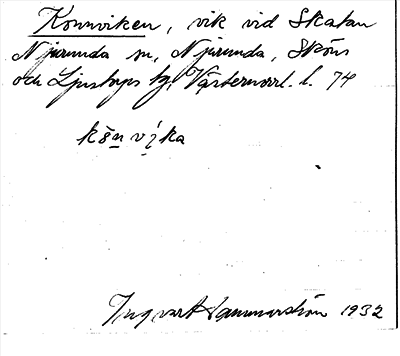 Konnviken, vik vid Skatan
Njurunda sn, Njurunda, Sköns
och Ljustorps tg, Västernorrl. l. 74
kõn vika
Ingvart Hammarström 1932